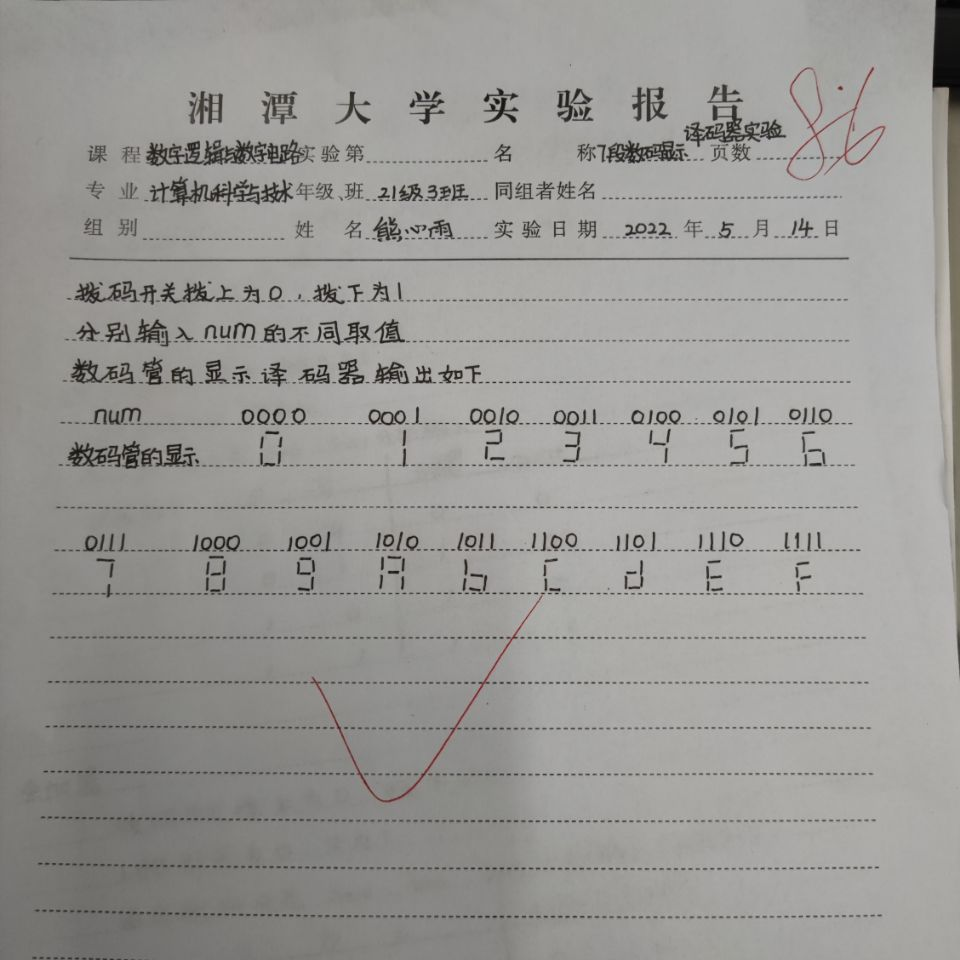 湘潭大学实验报告
课程 数字逻辑与数字电路 实验第 名称 7段数码显示译码器实验 页数
专业 计算机科学与技术 年级、班 21级3班 同组者姓名
组别 姓名 熊心雨 实验日期 2022 年 5 月 14 日
拨码开关拨上为0，拨下为1
分别输入num的不同取值
数码管的显示译码器输出如下
num 0000 0001 0010 0011 0100 0101 0110
数码管的显示 0 1 2 3 4 5 6
0111 1000 1001 1010 1011 1100 1101 1110 1111
7 8 9 A b C d E F